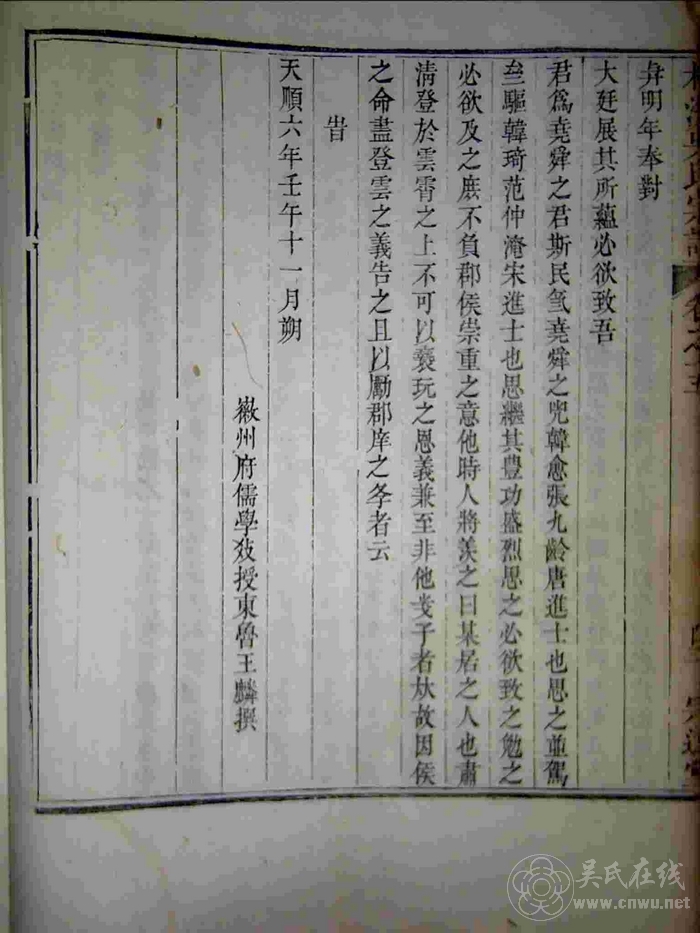 明年奉對
大廷展其所蘊必欲致吾
君爲堯舜之君斯民爲堯舜之民韓愈張九齡唐進士也思之並駕
並驅韓琦范仲淹宋進士也思繼其豊功盛烈思之必欲致之勉之
必欲及之庶不負郡侯崇重之意他時人將羨之曰某居之人也肅
清登於雲霄之上不可以褻玩之恩義兼至非他 于者 故因侯
之命盡登雲之義告之且以勵郡庠之 者云
旹
天順六年壬午十一月朔
徽州府儒學教授東魯王麟撰
吴氏在线
www.cnwu.net